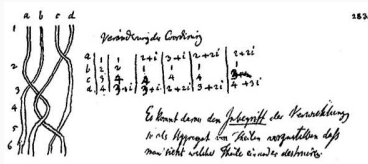 283
a b c d
Veränderung der Coordinirung
1
a | 1 | 1 | 2+i | 3+i | 2+2i | 2+2i
b | 2 | 2 | 1 | 1 | 1 | 1
c | 3 | 4 | 4 | 4 | 4
d | 4 | 3+i | 3+i | 2+2i | 3+2i | 4+3i
2
3
4
5
6
Es kommt den Inbegriff der Verwicklung
so als Aggregat von Theilen vorzustellen daß
man sieht welche Theile einander destruiren